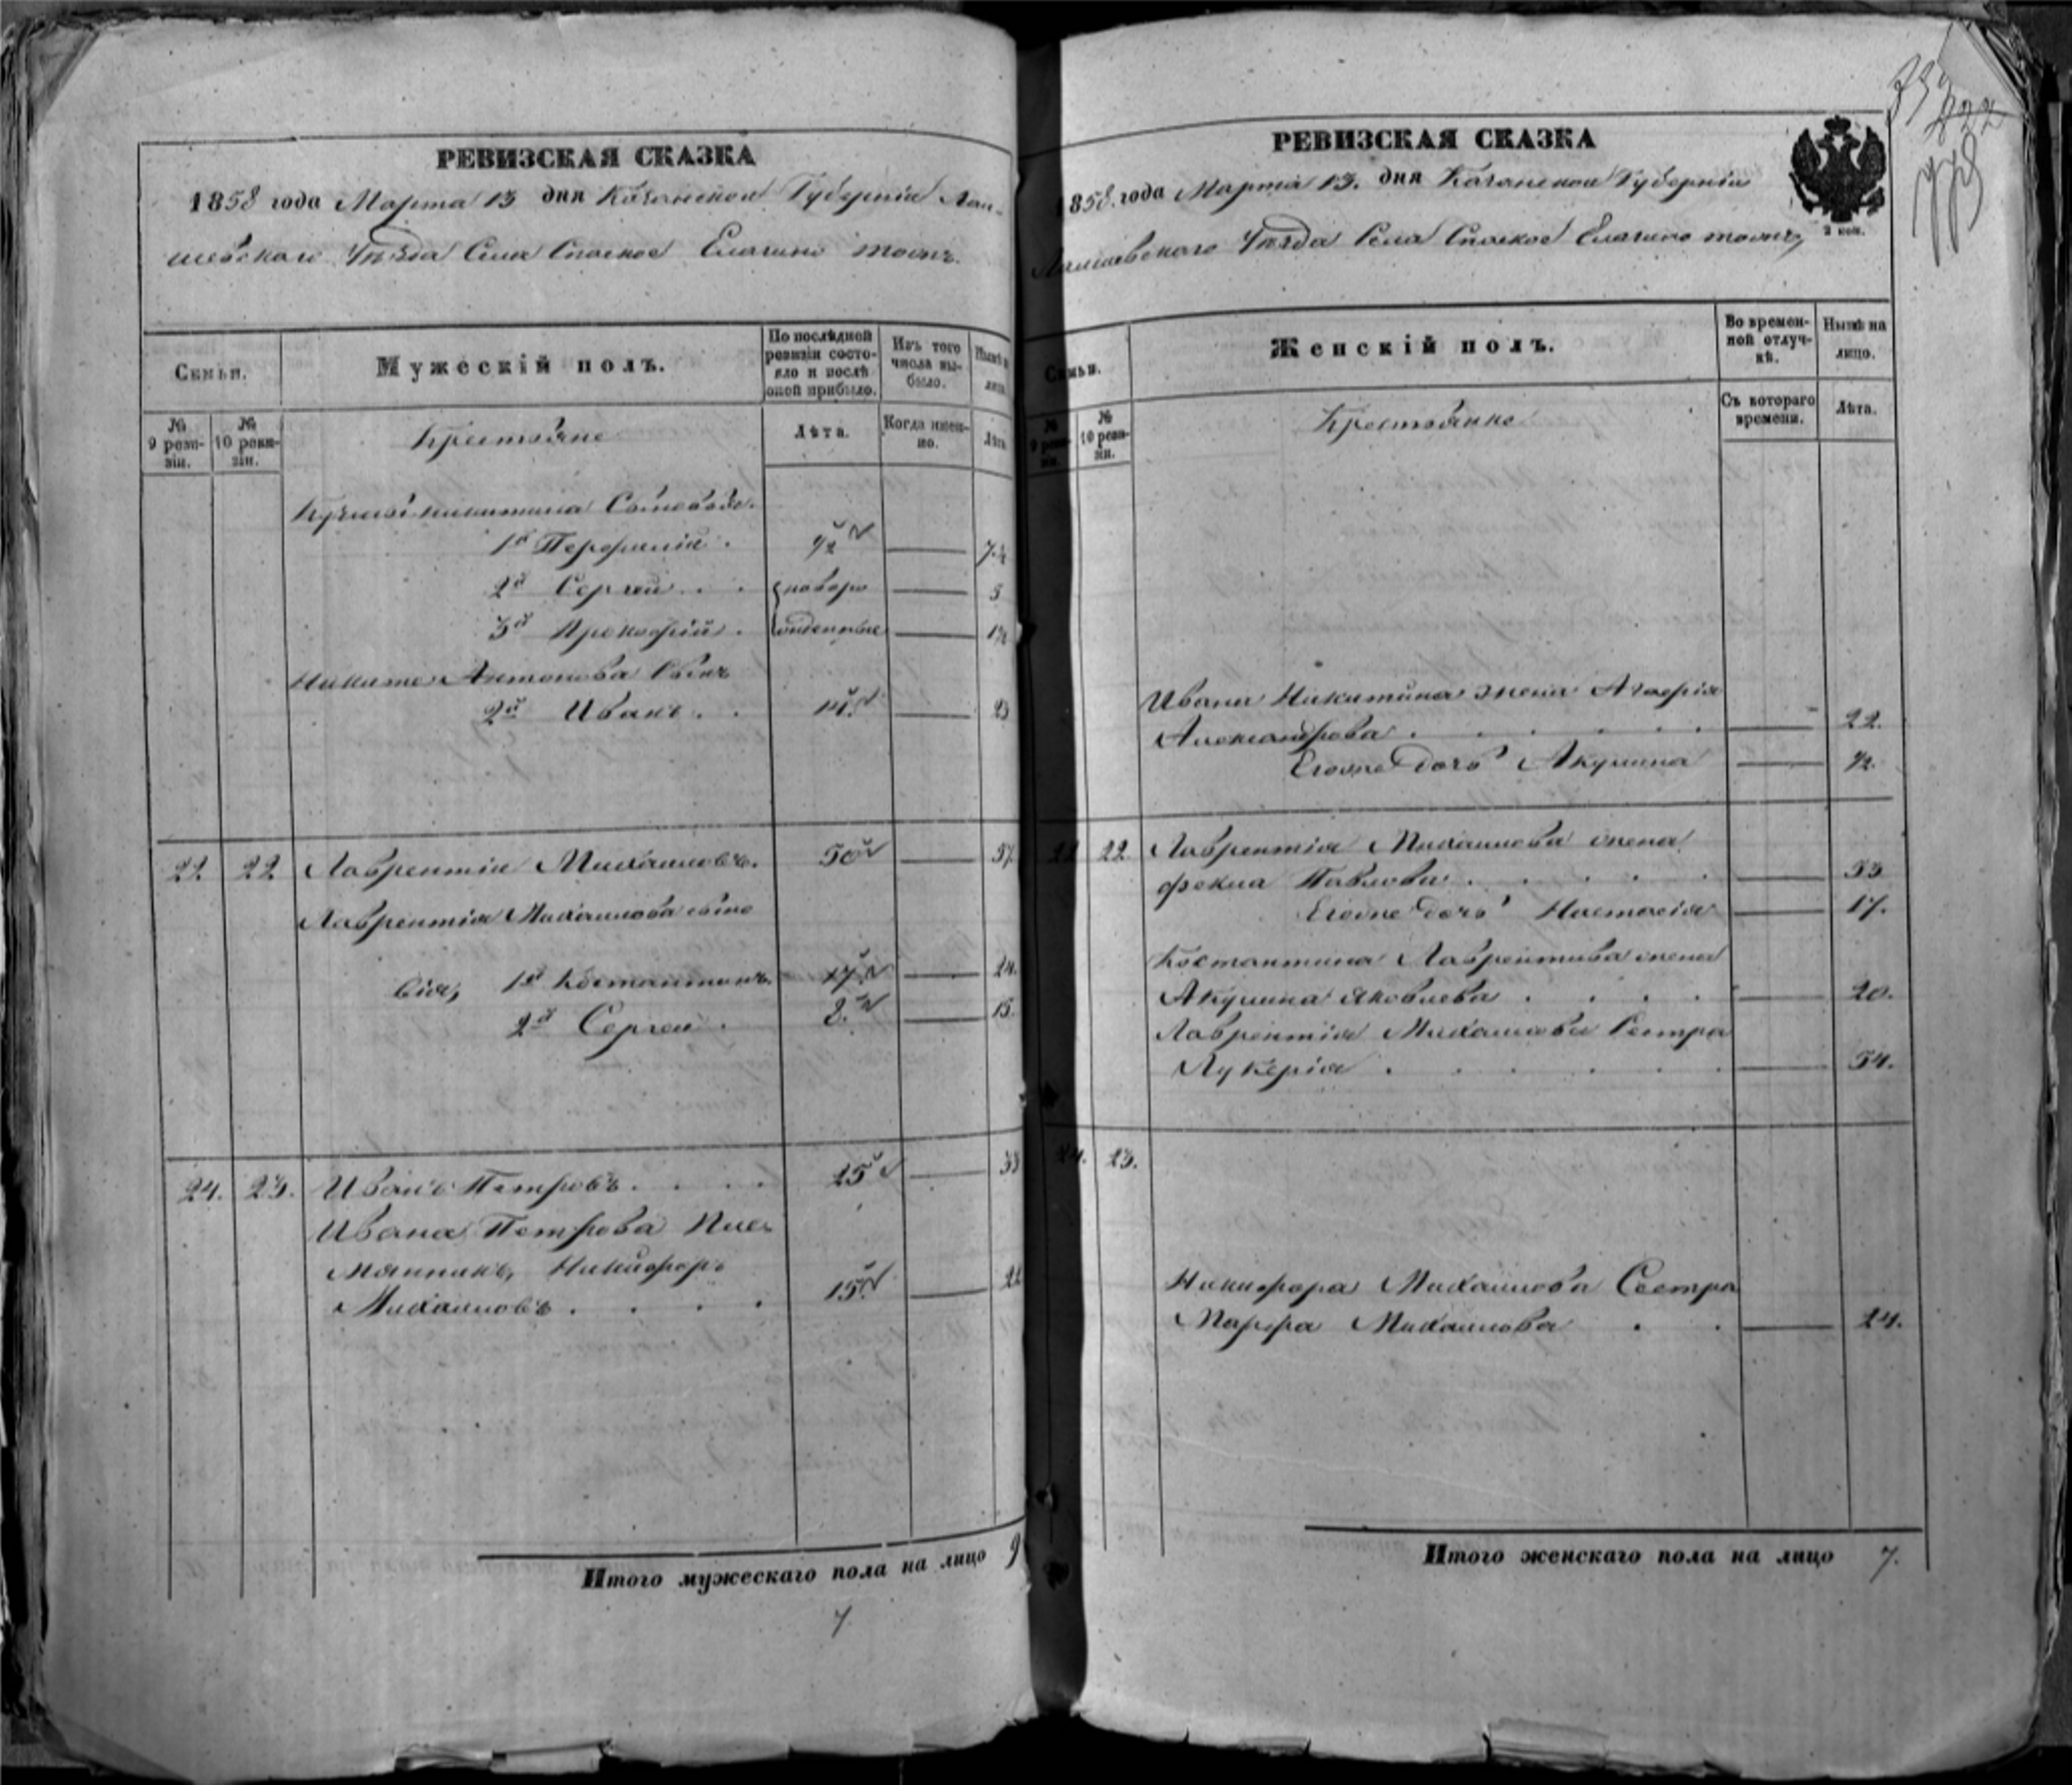 РЕВИЗСКАЯ СКАЗКА
1858 года Марта 13 дня Казанской Губерніи Лаи-
шевскаго Уѣзда Села Спаское Елагино тожъ.
Семьи.
Мужескій полъ.
По послѣдней ревизіи состояло и послѣ оной прибыло.
Изъ того числа выбыло.
Нынѣ на лицо.
№ 9 ревизіи.
№ 10 ревизіи.
Крестьяне
Лѣта.
Когда именно.
Лѣта.
Никитина Сыновья.
1й
1/2
7 1/2
2й Сергей . . новоро 5
3й Прокофій . жденные 1/2
Никиты Антонова Сынъ
2й Иванъ . . 23
22 22 Лаврентій Михайловъ. 50 57
Лаврентія Михайлова сыно
вья, 1й Костантинъ. 17 24.
2й Сергей . 8. 15.
24. 23. Иванъ Петровъ . . . . 25 33
Ивана Петрова Пле-
мянникъ, Никифоръ
Михайловъ . . . . 15 22
Итого мужескаго пола на лицо 9
7.
РЕВИЗСКАЯ СКАЗКА
1858 года Марта 13. дня Казанской Губерніи
Лаишевскаго Уѣзда Села Спаское Елагино тожъ,
2 коп.
Семьи.
Женскій полъ.
Во временной отлучкѣ.
Нынѣ на лицо.
№ 9 ревизіи.
№ 10 ревизіи.
Крестьянки
Съ котораго времени.
Лѣта.
Ивана Никитина жена
Александрова . . . . . 22.
Еговне дочь Акулина 1/2.
22 22. Лаврентія Михайлова жена
Фекла Павлова . . . . . 53
Еговне дочь Настасія 17.
Костантина Лаврентива жена
Акулина Яковлева . . . . 20.
Лаврентія Михайлова Сестра
Лукерія . . . . . . 54.
24. 23.
Никифора Михайлова Сестра
Марфа Михайлова . . 24.
Итого женскаго пола на лицо 7.